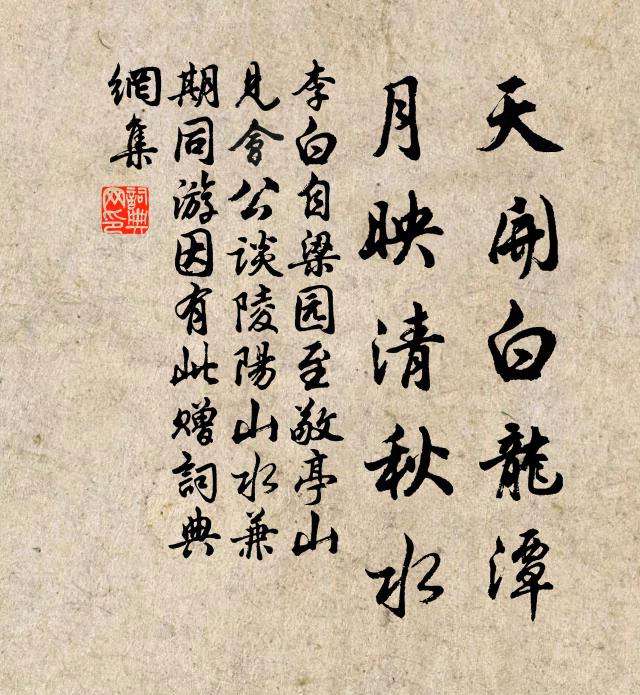 天開白龍潭
月映清秋水
李白自梁园至敬亭山
見會公談陵陽山水兼
期同游因有此赠詞典
網集
詞典网印